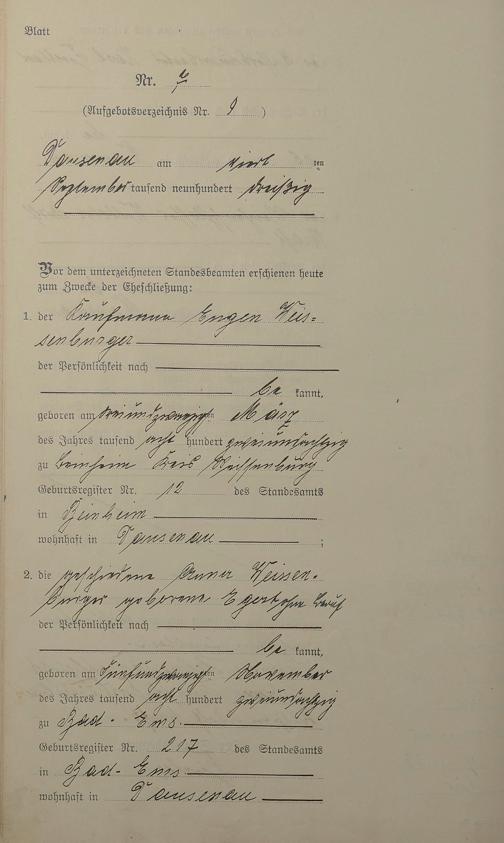 Blatt
Nr.
(Aufgebotsverzeichnis Nr. 9 )
Dausenau am viert ten
September tausend neunhundert dreißig
Vor dem unterzeichneten Standesbeamten erschienen heute
zum Zwecke der Eheschließung:
1. der Kaufmann Eugen Weis=
senburger
der Persönlichkeit nach
be kannt,
geboren am dreiundzwanzigsten März
des Jahres tausend acht hundert zweiundachtzig
zu Beinheim Kreis Weissenburg
Geburtsregister Nr. 12 des Standesamts
in Beinheim
wohnhaft in Dausenau ;
2. die geschiedene Anna Weissen-
burger geborene ohne Beruf
der Persönlichkeit nach
be kannt,
geboren am fünfundzwanzigsten November
des Jahres tausend acht hundert zweiundachtzig
zu Bad-Ems
Geburtsregister Nr. 217 des Standesamts
in Bad-Ems
wohnhaft in Dausenau